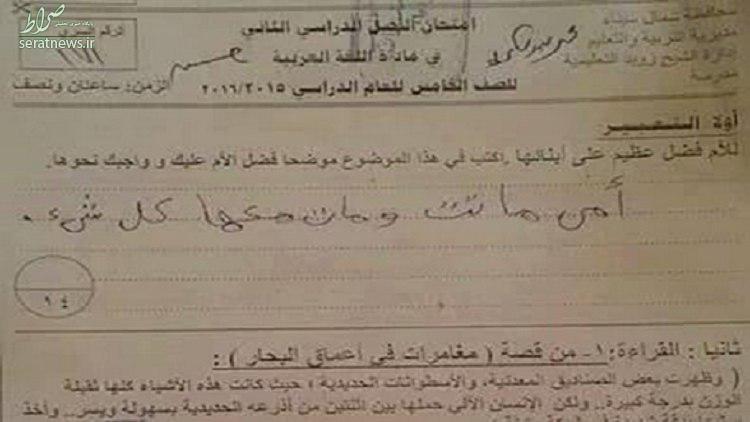 صراط
seratnews.ir
محافظة شمال سيناء
مديرية التربية والتعليم
إدارة الشيخ زويد التعليمية
مدرسة
امتحان الفصل الدراسي الثاني
في مادة اللغة العربية
للصف الخامس للعام الدراسي ٢٠١٦/٢٠١٥
الرقم السري
الزمن: ساعتان ونصف
أولا التعبير
للأم فضل عظيم على أبنائها اكتب في هذا الموضوع موضحا فضل الأم عليك و واجبك نحوها.
أمي ماتت ومات معها كل شيء .
١٤
ثانيا : القراءة: ١- من قصة ( مغامرات في أعماق البحار ) :
( وظهرت بعض الصناديق المعدنية، والأسطوانات الحديدية ؛ حيث كانت هذه الأشياء كلها ثقيلة
الوزن بدرجة كبيرة.. ولكن الإنسان الآلي حملها بين اثنتين من أذرعه الحديدية بسهولة ويسر.. وأخذ